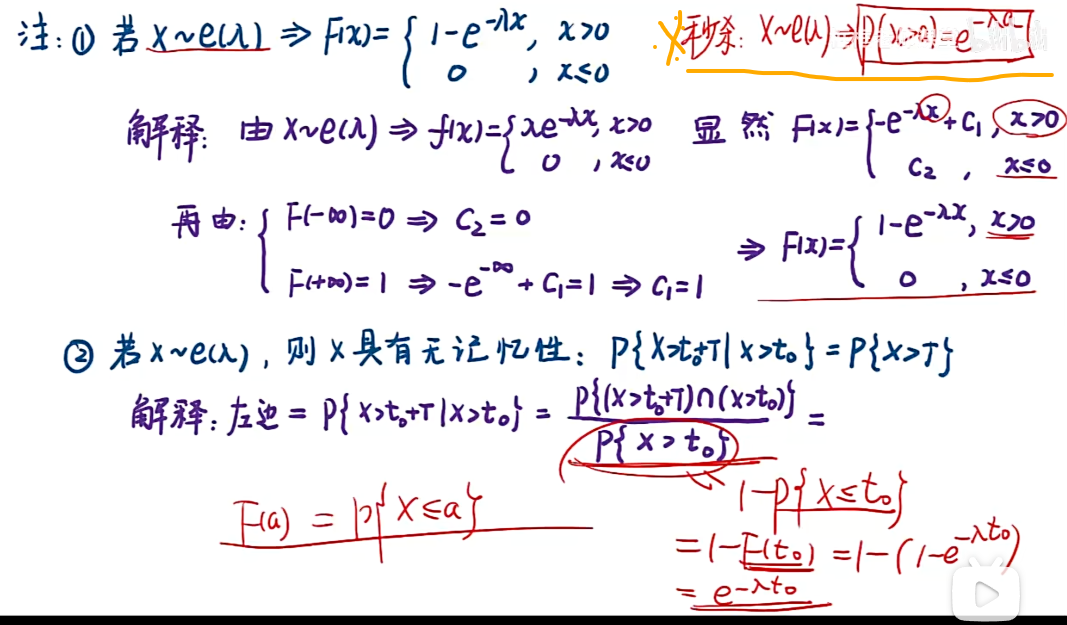 注: ① 若 X~e(λ) ⇒ F(x)= { 1-e^{-λx}, x>0
0 , x≤0
秒杀: X~e(λ) ⇒ P(x>a)=e^{-λa}
解释: 由 X~e(λ) ⇒ f(x)= { λe^{-λx}, x>0
0 , x≤0
显然 F(x)= { -e^{-λx}+C₁, x>0
C₂ , x≤0
再由: { F(-∞)=0 ⇒ C₂=0
F(+∞)=1 ⇒ -e^{-∞}+C₁=1 ⇒ C₁=1
⇒ F(x)= { 1-e^{-λx}, x>0
0 , x≤0
② 若 X~e(λ), 则 X 具有无记忆性: P{X>t₀+T|X>t₀}=P{X>T}
解释: 左边 = P{X>t₀+T|X>t₀} = P{(X>t₀+T)∩(X>t₀)} / P{X>t₀} =
F(a) = P{X≤a}
1-P{X≤t₀}
=1-F(t₀) =1-(1-e^{-λt₀})
= e^{-λt₀}